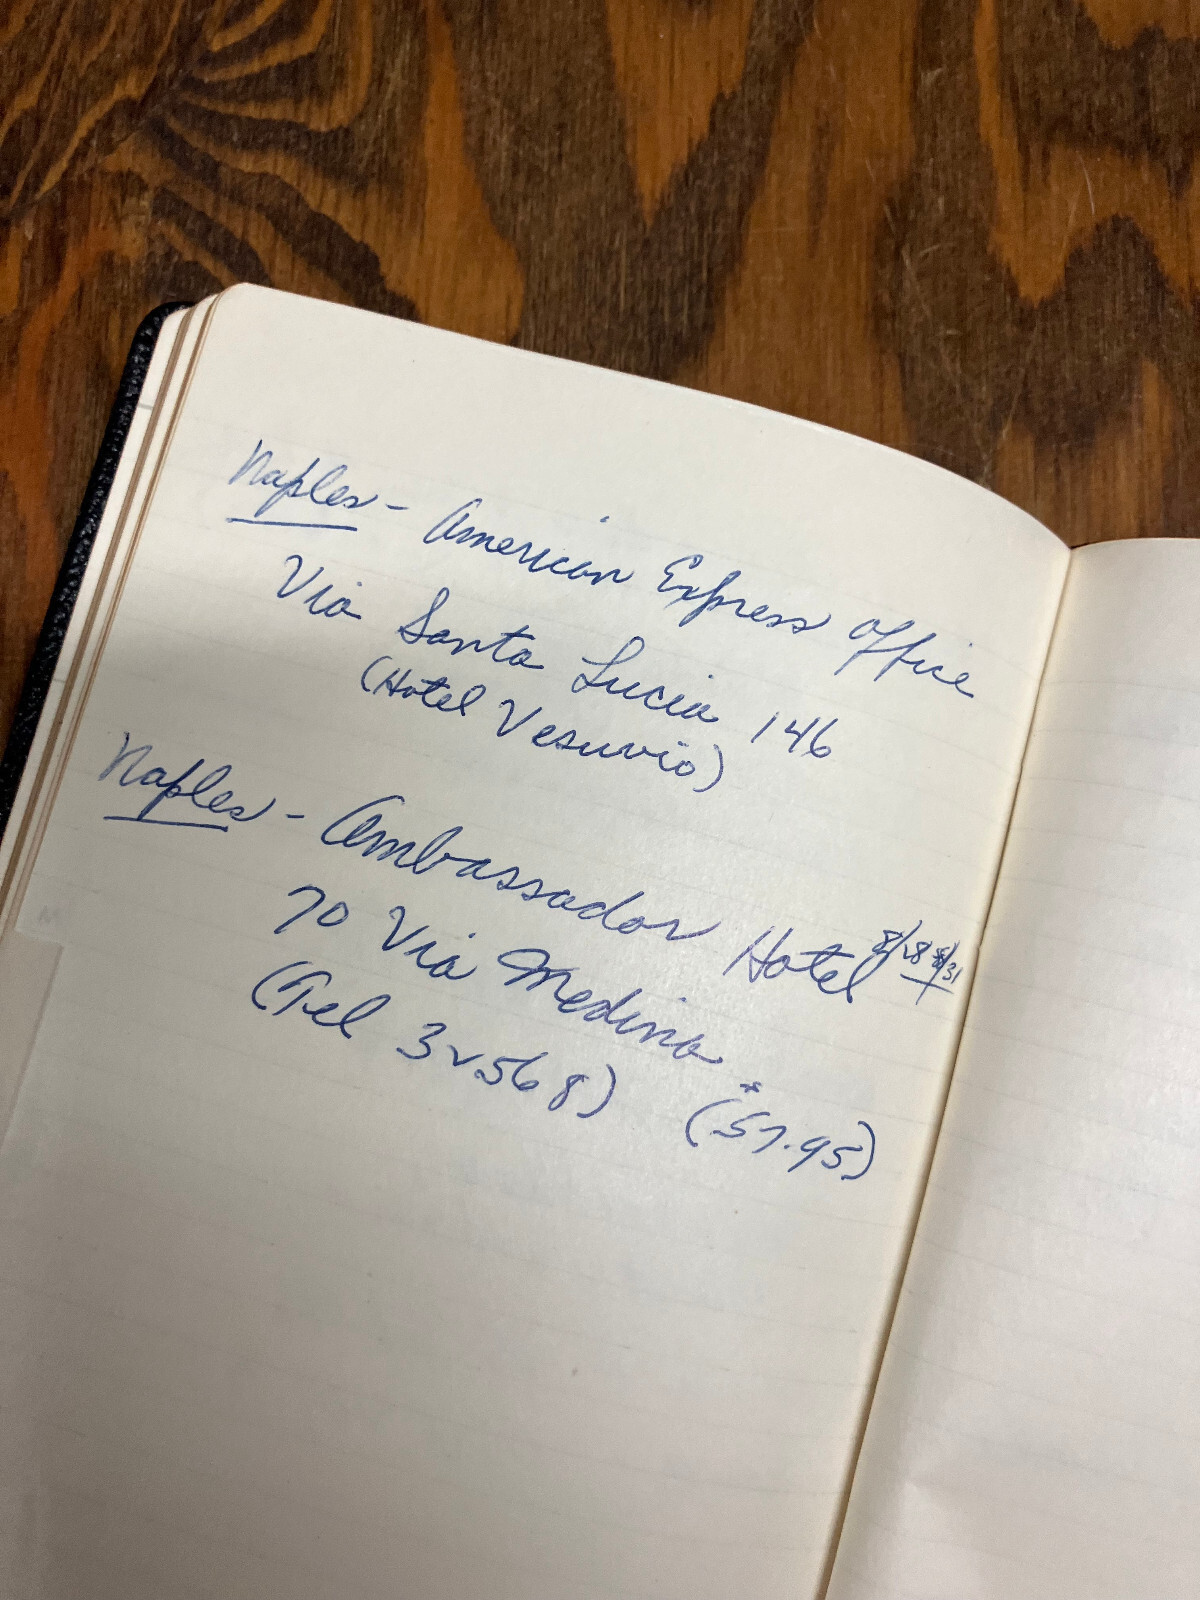 Naples - American Express Office
Via Santa Lucia 146
(Hotel Vesuvio)
Naples - Ambassador Hotel 8/28 8/31
70 Via Medina
(Tel 32568) (*57.95)